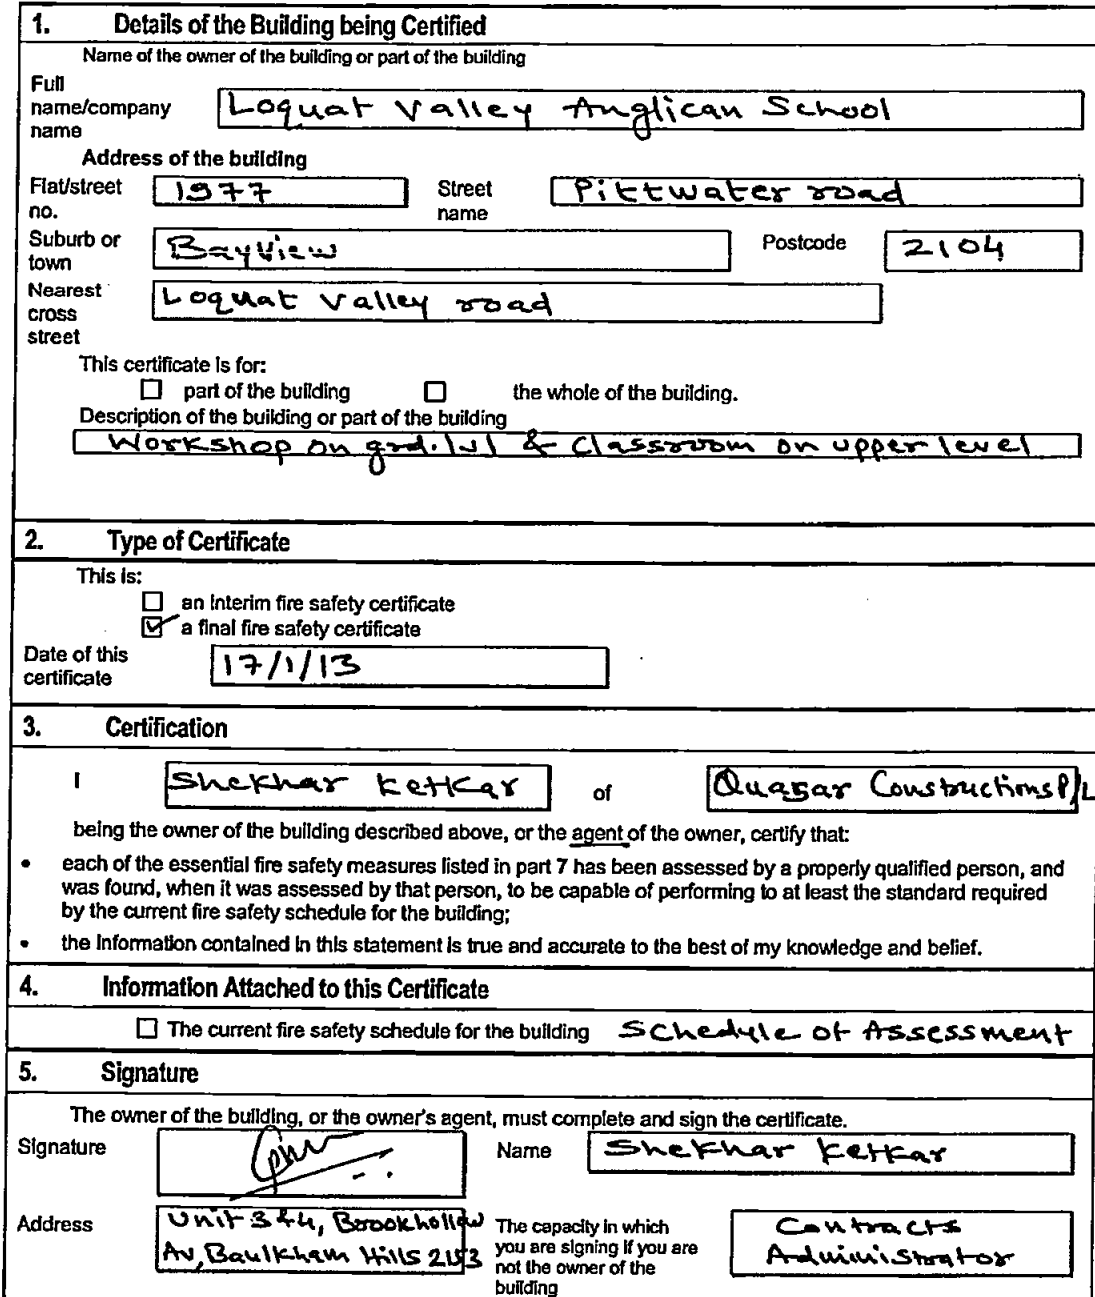 1. Details of the Building being Certified
Name of the owner of the building or part of the building
Full name/company name Loquat Valley Anglican School
Address of the building
Flat/street no. 1977 Street name Pittwater road
Suburb or town Bayview Postcode 2104
Nearest cross street Loquat Valley road
This certificate is for:
part of the building the whole of the building.
Description of the building or part of the building
Workshop on grd. lvl & Classroom on upper level
2. Type of Certificate
This is:
an interim fire safety certificate
a final fire safety certificate
Date of this certificate 17/1/13
3. Certification
I Shekhar Ketkar of Quasar Constructions P/L
being the owner of the building described above, or the agent of the owner, certify that:
• each of the essential fire safety measures listed in part 7 has been assessed by a properly qualified person, and
was found, when it was assessed by that person, to be capable of performing to at least the standard required
by the current fire safety schedule for the building;
• the information contained in this statement is true and accurate to the best of my knowledge and belief.
4. Information Attached to this Certificate
The current fire safety schedule for the building Schedule of Assessment
5. Signature
The owner of the building, or the owner's agent, must complete and sign the certificate.
Signature Name Shekhar Ketkar
Address Unit 3&4, Brookhollow
Av, Baulkham Hills 2153
The capacity in which
you are signing if you are
not the owner of the
building
Contracts
Administrator